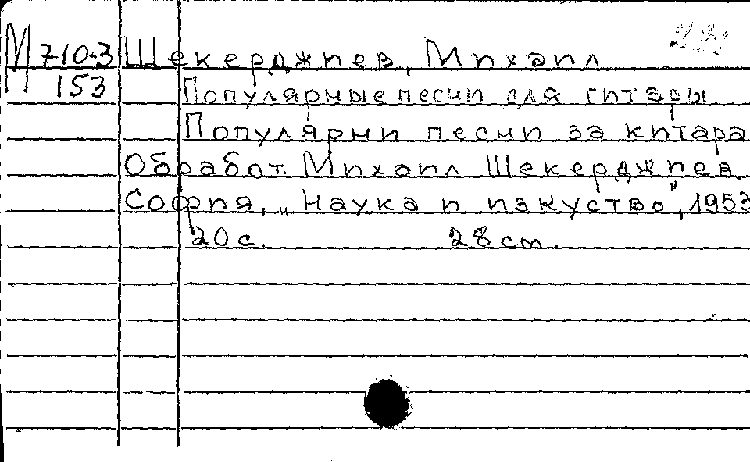 М 710-3 Шекерджиев, Михаил
М 153 Популярные песни для гитары
Популярни песни за китара
Обработ. Михаил Шекерджиев.
София, „Наука и изкуство", 1953
20 с. 28 cm.